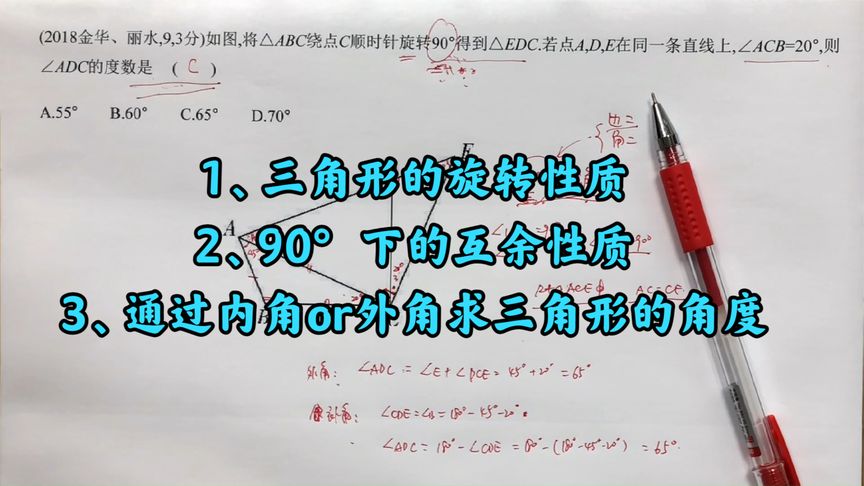 (2018金华、丽水,9,3分)如图,将△ABC绕点C顺时针旋转90°得到△EDC.若点A,D,E在同一条直线上,∠ACB=20°,则
∠ADC的度数是 ( C )
A.55° B.60° C.65° D.70°
边=
角=
E
1、三角形的旋转性质
A
2、90° 下的互余性质
90°
AC=CE.
3、通过内角or外角求三角形的角度
外角: ∠ADC = ∠E+∠DCE = 45°+20° = 65°
∠CDE=∠B=180°-45°-20°
∠ADC = 180°-∠CDE = 180°-(180°-45°-20°) = 65°.